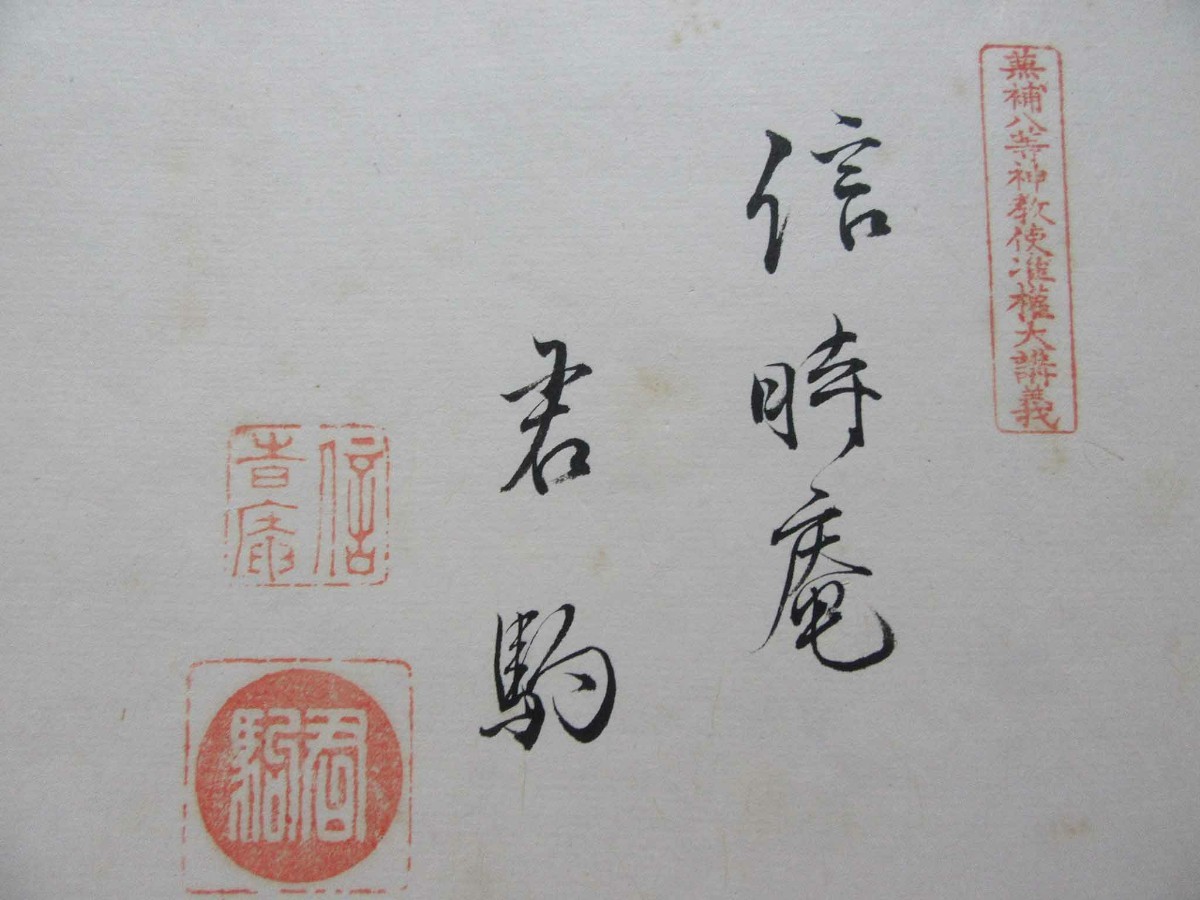 兼補八等神教使准権大講義
信時庵
君駒
信旹庵
君駒